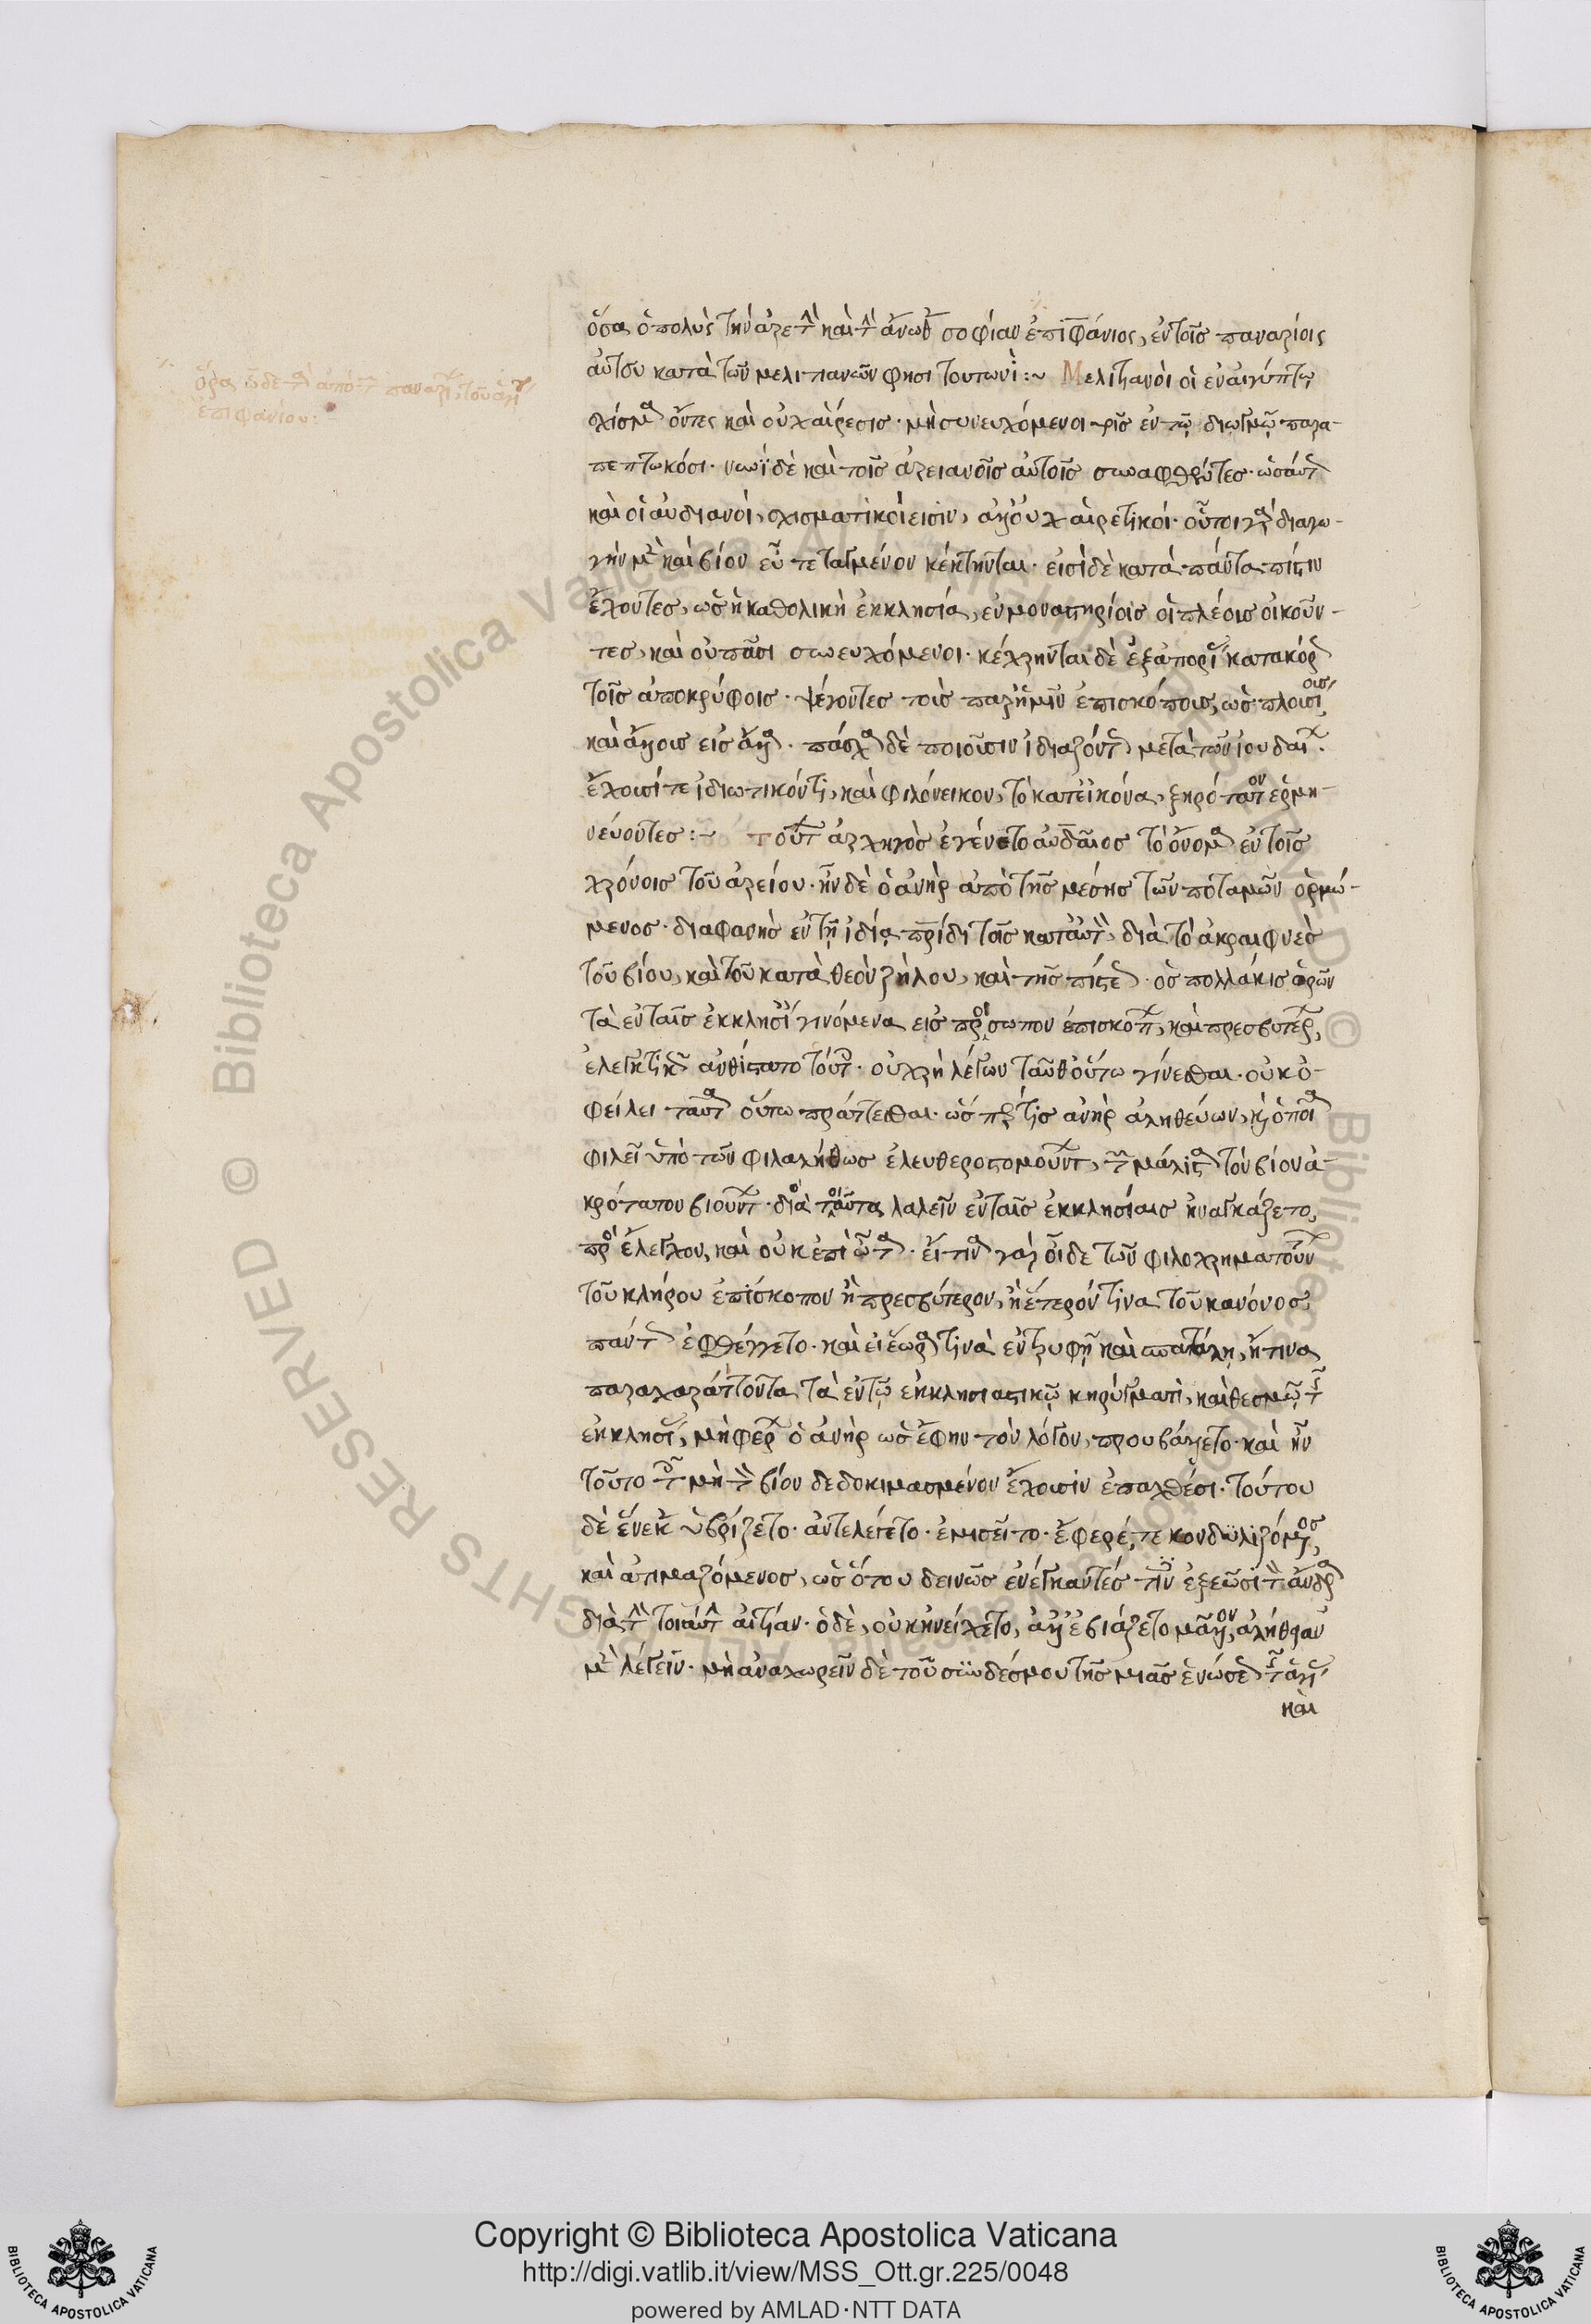 ὅσα ὁ πολὺς τὴν ἀρετὴν καὶ τὴν ἄνωθεν σοφίαν ἐπιφάνιος, ἐν τοῖς παναρίοις
αὐτοῦ κατὰ τῶν μελιτιανῶν φησι τουτωνί :~ Μελιτιανοὶ οἱ ἐν αἰγύπτῳ
σχίσμα ὄντες καὶ οὐχ αἵρεσις· μὴ συνευχόμενοι τοῖς ἐν τῷ διωγμῷ παρα-
πεπτωκόσι· νυνὶ δὲ καὶ τοῖς ἀρειανοῖς αὐτοῖς συναφθέντες· ὡσαύτως
καὶ οἱ αὐδιανοί, σχισματικοί εἰσιν, ἀλλ' οὐχ αἱρετικοί· οὗτοι γὰρ διαγω-
γὴν μὲν καὶ βίον εὖ τεταγμένον κέκτηνται· εἰσὶ δὲ κατὰ πάντα πίστιν
ἔχοντες, ὡς ἡ καθολικὴ ἐκκλησία, ἐν μοναστηρίοις οἱ πλείους οἰκοῦν-
τες, καὶ οὐ πᾶσι συνευχόμενοι· κέχρηνται δὲ ἐξ ἀπορίας κατακόρως
τοῖς ἀποκρύφοις· ψέγοντες τοὺς παρ' ἡμῖν ἐπισκόπους, ὡς πλουσίους,
καὶ ἄλλους εἰς ἄλλα· πάσχα δὲ ποιοῦσιν ἰδιαζόντως μετὰ τῶν ἰουδαίων.
ἔχουσί τε ἰδιωτικόν τι, καὶ φιλόνεικον, τὸ κατ' εἰκόνα, ξηρότατον ἑρμη-
νεύοντες :~ τούτων ἀρχηγὸς ἐγένετο αὐδαῖος τὸ ὄνομα ἐν τοῖς
χρόνοις τοῦ ἀρείου· ἦν δὲ ὁ ἀνὴρ ἀπὸ τῆς μέσης τῶν ποταμῶν ὁρμώ-
μενος· διαφανὴς ἐν τῇ ἰδίᾳ πατρίδι τοῖς κατ' αὐτὸν, διὰ τὸ ἀκραιφνὲς
τοῦ βίου, καὶ τοῦ κατὰ θεὸν ζήλου, καὶ τῆς πίστεως· ὃς πολλάκις ὁρῶν
τὰ ἐν ταῖς ἐκκλησίαις γινόμενα εἰς πρόσωπον ἐπισκόπων, καὶ πρεσβυτέρων,
ἐλεγκτικῶς ἀνθίστατο τούτοις· οὐ χρὴ λέγων ταῦθ' οὕτω γίνεσθαι· οὐκ ὀ-
φείλει ταῦτα οὕτω πράττεσθαι· ὥσπερ τις ἀνὴρ ἀληθεύων, καὶ ὁποῖα
φιλεῖ ὑπὸ τῶν φιλαλήθως ἐλευθεροστομούντων, τῶν μάλιστα τὸν βίον ἀ-
κρότατον βιούντων· διὰ τοιαῦτα λαλεῖν ἐν ταῖς ἐκκλησίαις ἠναγκάζετο,
πρὸς ἔλεγχον, καὶ οὐκ ἐπίπαν· εἴ τινα γὰρ οἶδε τῶν φιλοχρηματούντων
τοῦ κλήρου ἐπίσκοπον ἢ πρεσβύτερον, ἢ ἕτερόν τινα τοῦ κανόνος,
πάντως ἐφθέγγετο· καὶ εἰ ἑώρα τινὰ ἐν τρυφῇ καὶ σπατάλῃ, ἤ τινα
παραχαράττοντα τὰ ἐν τῷ ἐκκλησιαστικῷ κηρύγματι, καὶ θεσμῷ τῆς
ἐκκλησίας, μὴ φέρων ὁ ἀνὴρ ὡς ἔφην τὸν λόγον, προυβάλλετο· καὶ ἦν
τοῦτο τοῖς μὴ τὸν βίον δεδοκιμασμένον ἔχουσιν ἐπαχθές· τούτου
δὲ ἕνεκεν ὑβρίζετο· ἀντελέγετο· ἐμισεῖτο· ἐφέρετό τε κονδυλιζόμενος,
καὶ ἀτιμαζόμενος, ὡς ὅτου δεινῶς ἐνέγκαντές τινες ἐξεῶσι τὸν ἄνδρα
διὰ τὴν τοιαύτην αἰτίαν· ὁ δὲ, οὐκ ἠνείχετο, ἀλλ' ἐβιάζετο μᾶλλον, ἀλήθειαν
μὲν λέγειν· μὴ ἀναχωρεῖν δὲ τοῦ συνδέσμου τῆς μιᾶς ἑνώσεως τῆς ἁγίας
καὶ
ὅρα ὧδε τὰ ἀπὸ τῶν παναρίων τοῦ ἁγίου
ἐπιφανίου:
Copyright © Biblioteca Apostolica Vaticana
http://digi.vatlib.it/view/MSS_Ott.gr.225/0048
powered by AMLAD·NTT DATA
BIBLIOTECA APOSTOLICA VATICANA
BIBLIOTECA APOSTOLICA VATICANA